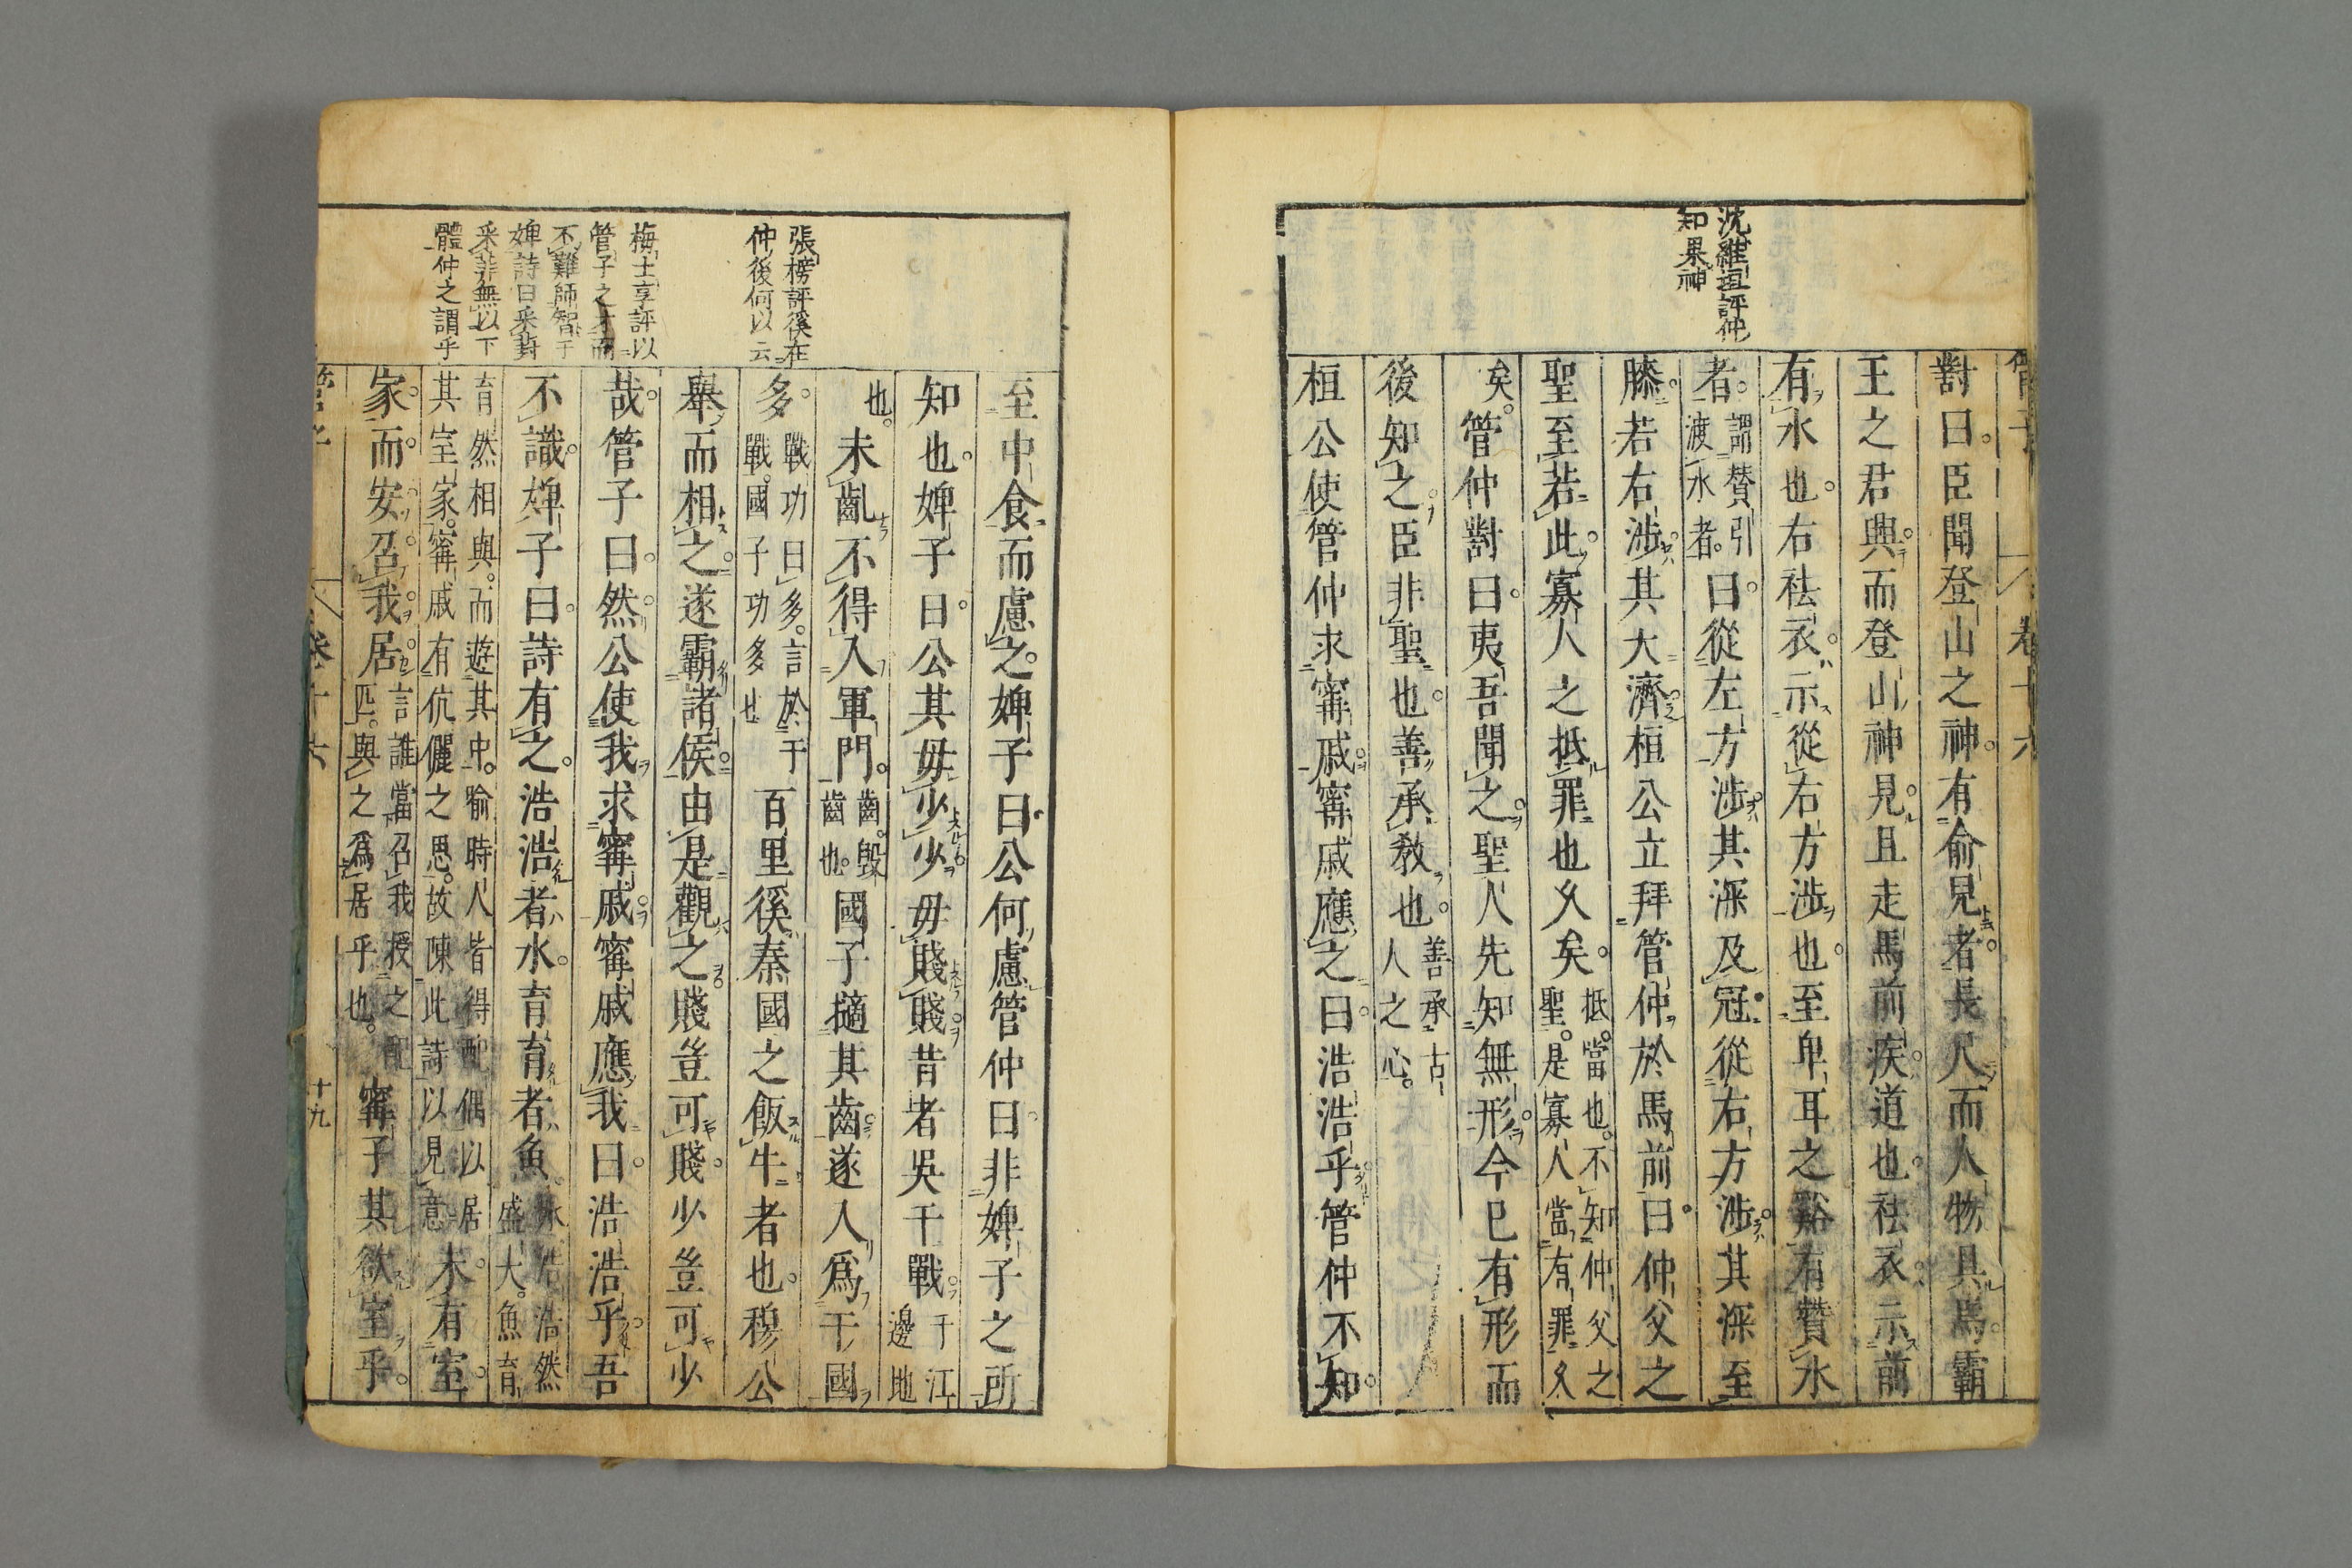 沈維垣評仲
知果神
對曰臣聞登山之神有俞兒者長尺而人物具焉霸
王之君興而登山神見且走馬前疾道也袪衣示前
有水也右袪衣示從右方涉也至卑耳之谿有贊水
者謂贊引渡水者曰從左方涉其深及冠從右方涉其深至
膝若右涉其大濟桓公立拜管仲於馬前曰仲父之
聖至若此寡人之抵罪也久矣抵當也不知仲父之聖是寡人當有罪久
矣管仲對曰夷吾聞之聖人先知無形今已有形而
後知之臣非聖也善承教也善承古人之心
桓公使管仲求甯戚甯戚應之曰浩浩乎管仲不知
張榜評徯在
仲後何以云
梅士享評以
管子之才而
不難師智于
婢詩曰采葑
采菲無以下
體仲之謂乎
至中食而慮之婢子曰公何慮管仲曰非婢子之所
知也婢子曰公其毋少少毋賤賤昔者吳干戰干江邊地
也未齔不得入軍門齒毀齒也國子擿其齒遂入爲干國
多戰功曰多言於于戰國子功多也百里徯秦國之飯牛者也穆公
舉而相之遂霸諸侯由是觀之賤豈可賤少豈可少
哉管子曰然公使我求甯戚甯戚應我曰浩浩乎吾
不識婢子曰詩有之浩浩者水育育者魚水浩浩然盛大魚育
育然相與而遊其中喻時人皆得配偶以居其室家甯戚有伉儷之思故陳此詩以見意未有室
家而安召我居言誰當召我授之配匹與之爲居乎也甯子其欲室乎
管子
卷十六
十九